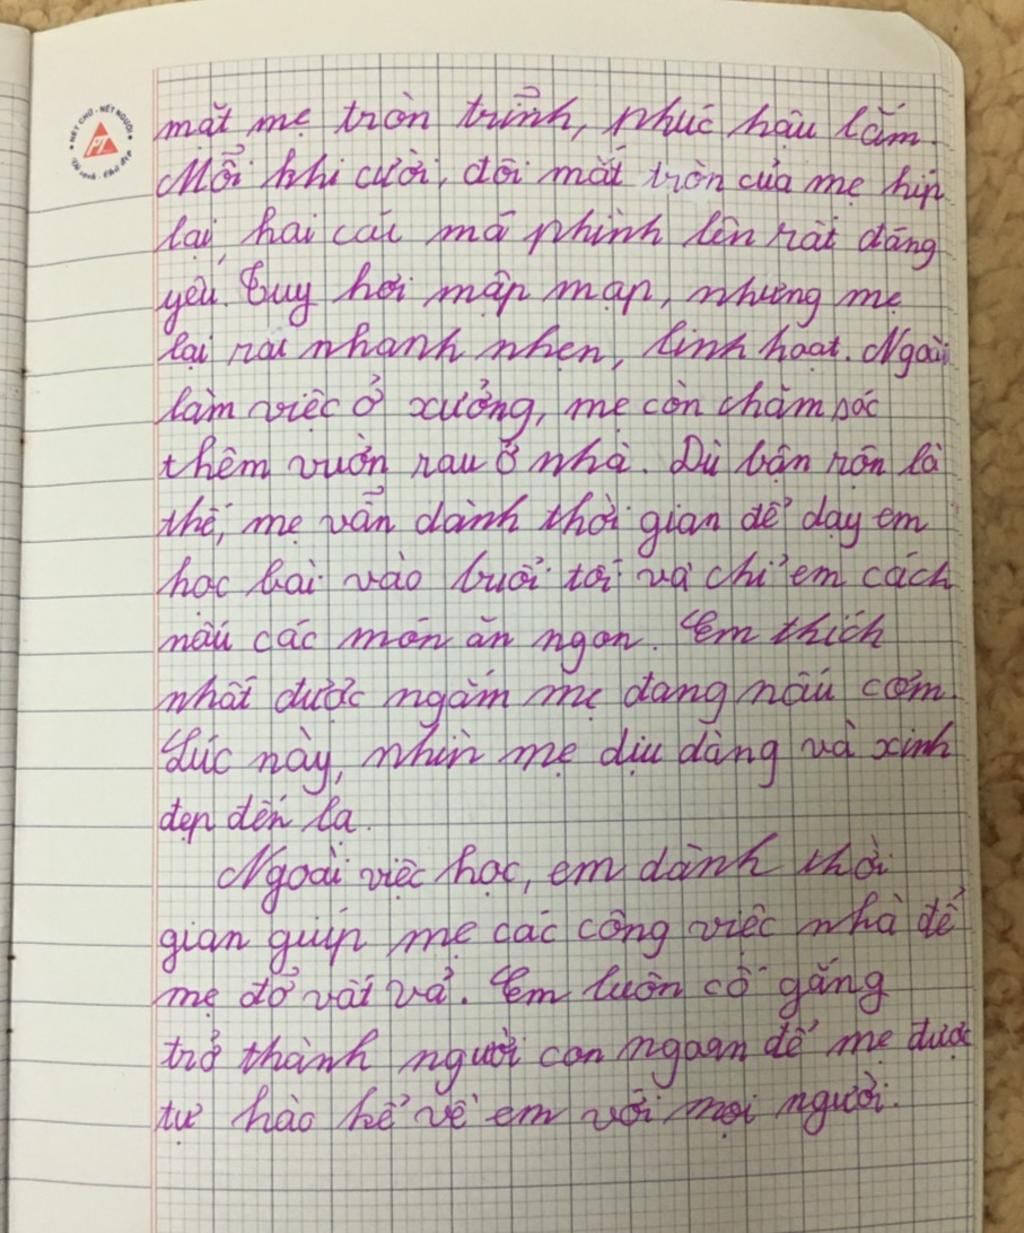 NÉT CHỮ - NẾT NGƯỜI
PT
mặt mẹ tròn trĩnh, phúc hậu lắm.
Mỗi khi cười, đôi mắt tròn của mẹ híp
lại, hai cái má phính lên rất đáng
yêu. Tuy hơi mập mạp, nhưng mẹ
lại rất nhanh nhẹn, linh hoạt. Ngoài
làm việc ở xưởng, mẹ còn chăm sóc
thêm vườn rau ở nhà. Dù bận rộn là
thế, mẹ vẫn dành thời gian để dạy em
học bài vào buổi tối và chỉ em cách
nấu các món ăn ngon. Em thích
nhất được ngắm mẹ đang nấu cơm.
Lúc này, nhìn mẹ dịu dàng và xinh
đẹp đến lạ.
Ngoài việc học, em dành thời
gian giúp mẹ các công việc nhà để
mẹ đỡ vất vả. Em luôn cố gắng
trở thành người con ngoan để mẹ được
tự hào kể về em với mọi người.